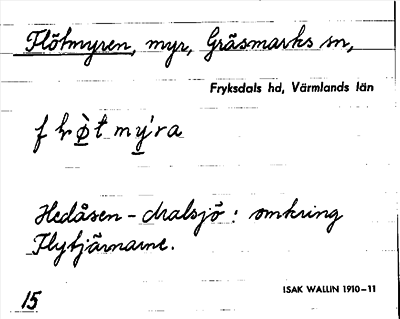 Flötmyren, myr, Gräsmarks sn,
Fryksdals hd, Värmlands län
Hedåsen - Mralsjö: omkring
Flytjärnarne.
ISAK WALLIN 1910-11
15